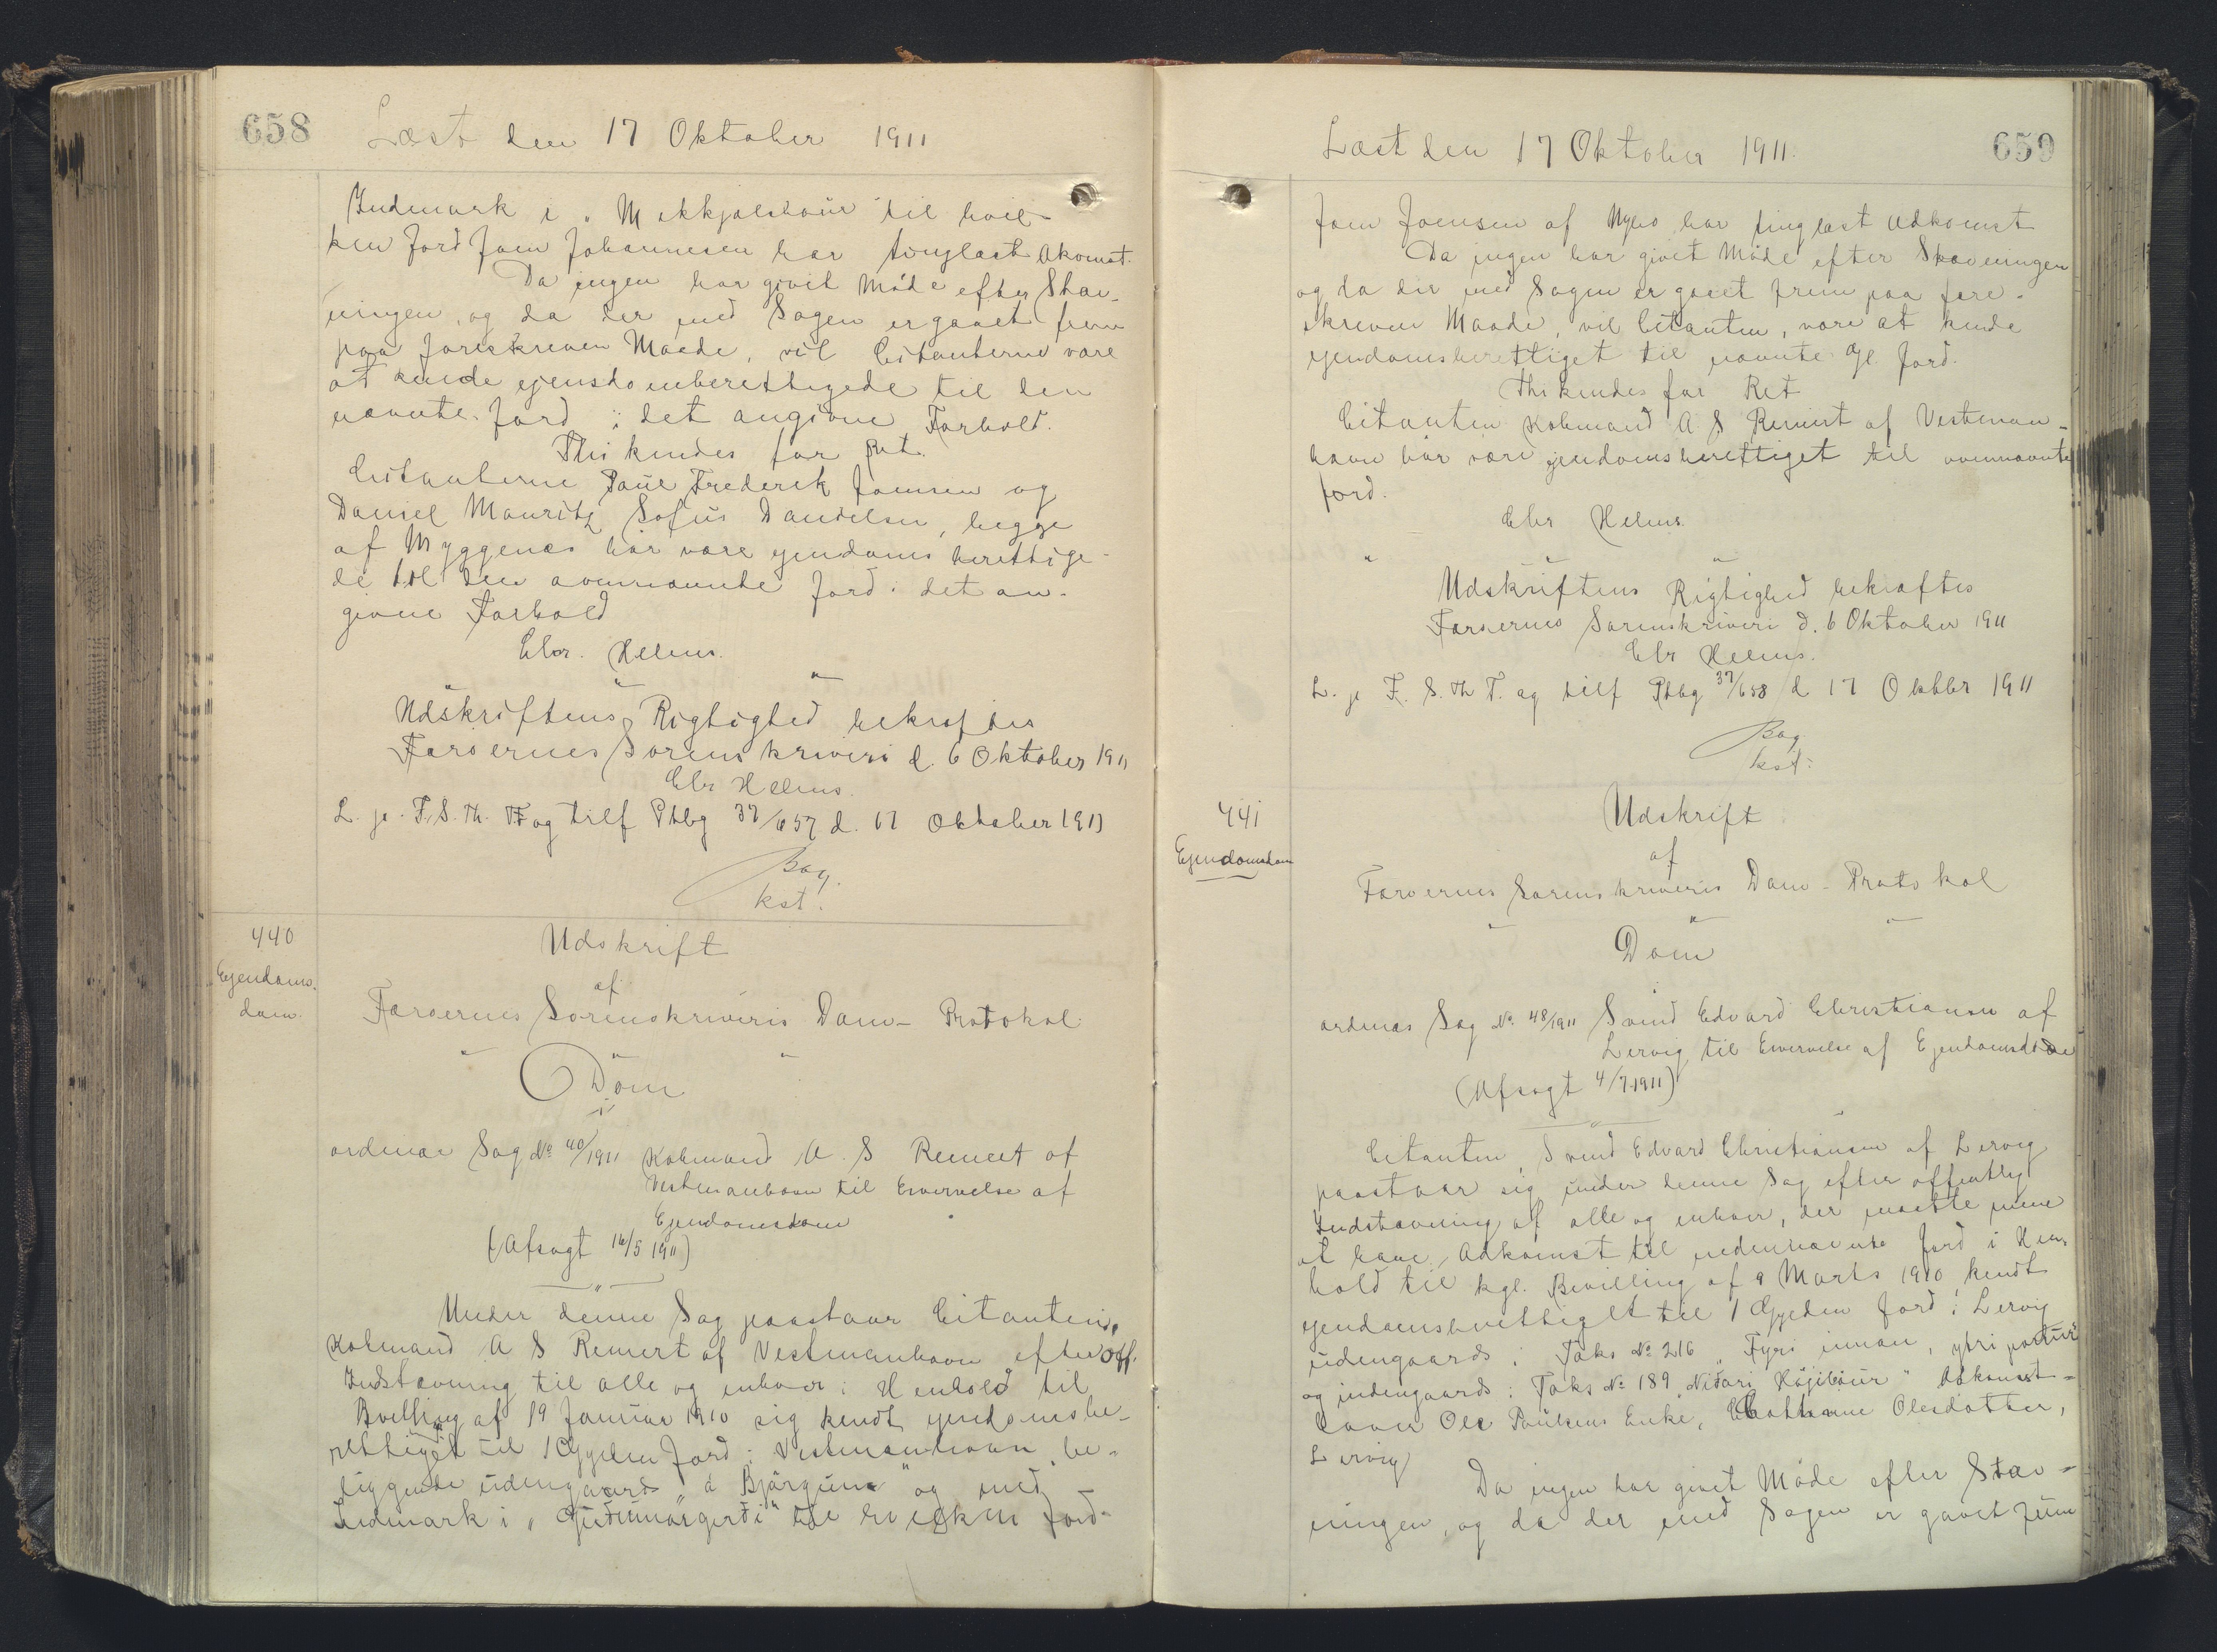 658
Læst den 17 Oktober 1911
Indmark i "Mekkjalsbour" til hvil-
ken Jord Joen Johannesen har tinglæst Akomst.
Da ingen har givet Møde efter Stæv-
ningen, og da der med Sagen er gaaet frem
paa foreskreven Maade, vil Citanterne være
at kende ejensdomberettigede til den
nævnte Jord i det angivne Forhold.
Thi kendes for Ret
Citanterne Poul Frederik Joensen og
Daniel Mauritz Sofus Danielsen, begge
af Myggenæs bør være ejendomsberettige-
de til den ovennævnte Jord i det an-
givne Forhold
Chr. Helms.
Udskriftens Rigtighed bekræftes
Færøernes Sorenskriveri d. 6 Oktober 1911
Chr Helms.
L. p. F. S. Th. T. og tilf Ptbg 37/657 d. 17 Oktober 1911
Bag.
kst.
440
Ejendoms-
dom.
Udskrift
af
Færøernes Sorenskriveris Dom-Protokol
Dom
i
ordinær Sag No 40/1911 Købmand A. S Reinert af
Vestmanhavn til Erhvervelse af
Ejendomsdom
(Afsagt 16/5 1911)
Under denne Sag paastaar Citanten,
Købmand A S Reinert af Vestmanhavn efter off.
Indstævning til alle og enhver i Henhold til
Bevilling af 19 Januar 1910 sig kendt ejendomsbe-
rettiget til 1 Gylden Jord i Vestmanhavn be-
liggende udengaards "á Bjørgum" og med
Indmark i "Gudmunsgerði" til hvilken Jord
659
Læst den 17 Oktober 1911.
Joen Joensen af Nybo har tinglæst Adkomst
Da ingen har givet Møde efter Stævningen
og da der med Sagen er gaaet frem paa fore-
skreven Maade, vil Citanten, være at kende
ejendomsberettiget til nævnte Gl. Jord.
Thi kendes for Ret
Citanten Købmand A S Reinert af Vestman-
havn bør være ejendomsberettiget til ovennævnte
Jord.
Chr Helms.
Udskriftens Rigtighed bekræftes
Færøernes Sorenskriveri d. 6 Oktober 1911
Chr Helms.
L. p F. S. Th T. og tilf Ptbg 37/658 d 17 Oktbr 1911
Bag
kst:
441
Ejendomsdom
Udskrift
af
Færøernes Sorenskriveris Dom-Protokol
Dom
i
ordinær Sag No. 48/1911 Svend Edvard Christiansen af
Lervig til Erhvervelse af Ejendomsdom
(Afsagt 4/7 1911)
Citanten, Svend Edvard Christiansen af Lervig
paastaar sig under denne Sag efter offentlig
Indstævning af alle og enhver, der maatte mene
at have Adkomst til nedennævnte Jord i Hen-
hold til kgl. Bevilling af 9 Marts 1910 kendt
ejendomsberettiget til 1 Gylden Jord i Lervig
udengaards i Taks No 216 "Fyri innan, ytri partur"
og indengaards i Taks No 189 "Niðari Højibour" Adkomst-
haver Ole Poulsens Enke, Cathrine Olesdatter,
Lervig
Da ingen har givet Møde efter Stæv-
ningen, og da der med Sagen er gaaet frem